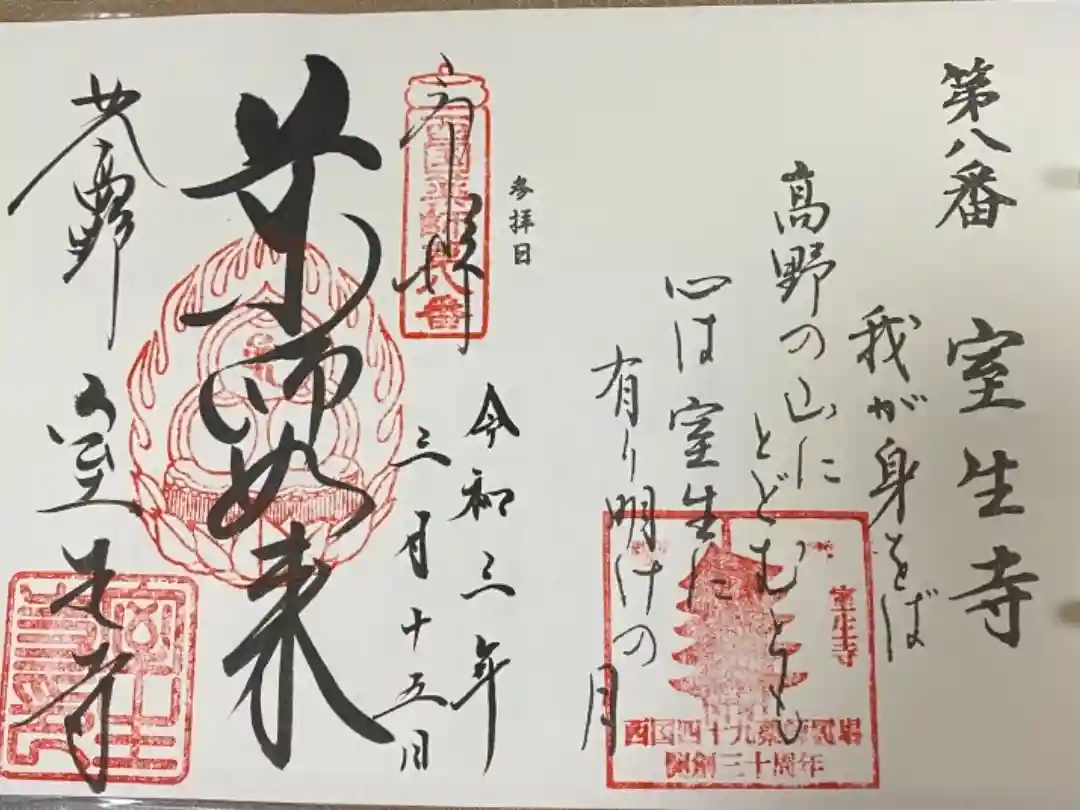 第八番 室生寺
我が身をば
高野の山に
とどむとも
心は室生に
有り明けの月
室生寺
西国四十九薬師霊場
開創三十周年
参拝日
令和三年
三月十五日
奉拝
西国薬師第八番
薬師如来
女人高野 室生寺